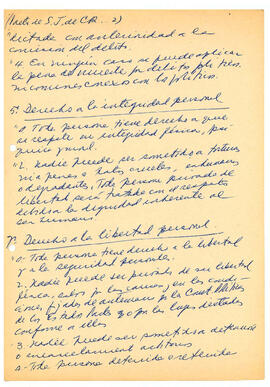 (Pacto de S.J. de C.R. 2)
dictada con anterioridad a la
comisión del delito.
"4. En ningún caso se puede aplicar
la pena de muerte por delitos políticos
ni comunes conexos con los políticos.
5º Derecho a la integridad personal
"1. Toda persona tiene derecho a que
se respete su integridad física, psí
quica y moral.
"2. Nadie puede ser sometido a torturas
ni a penas o tratos crueles, inhumanos
o degradantes. Toda persona privada de
libertad será tratada con el respeto
debido a la dignidad inherente al
ser humano"
7º Derecho a la libertad personal
Toda persona tiene derecho a la libertad
y a la seguridad personales.
2. Nadie puede ser privado de su libertad
física, salvo por las causas y en las condi
ciones fijadas de antemano por la Const. Políticas
de los Estados Partes o por las leyes dictadas
conforme a ellas
3. Nadie puede ser sometido a detención
o encarcelamiento arbitrarios
4. Toda persona detenida o retenida